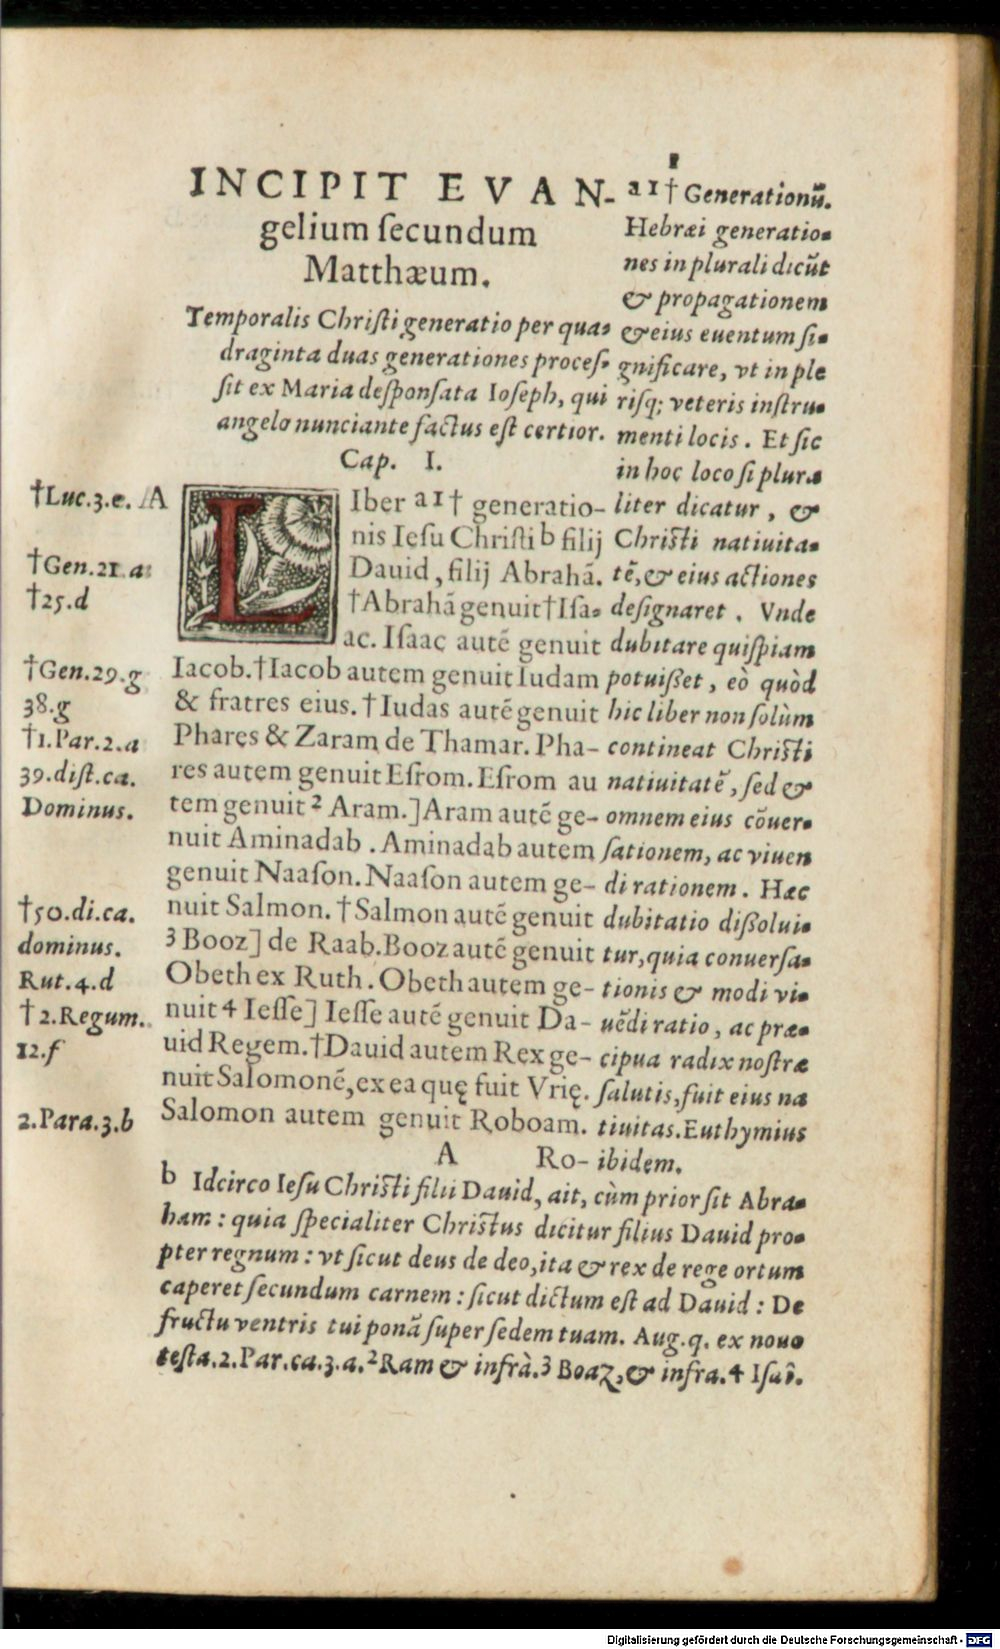 1
INCIPIT EVAN-
gelium ſecundum
Matthæum.
Temporalis Chriſti generatio per qua-
draginta duas generationes proceſ-
ſit ex Maria deſponſata Ioſeph, qui
angelo nunciante factus eſt certior.
Cap. I.
LIber a1† generatio-
nis Ieſu Chriſti b filij
Dauid, filij Abrahā.
†Abrahā genuit †Iſa-
ac. Iſaac autē genuit
Iacob. †Iacob autem genuit Iudam
& fratres eius. †Iudas autē genuit
Phares & Zaram de Thamar. Pha-
res autem genuit Eſrom. Eſrom au
tem genuit 2 Aram.] Aram autē ge-
nuit Aminadab. Aminadab autem
genuit Naaſon. Naaſon autem ge-
nuit Salmon. †Salmon autē genuit
3 Booz] de Raab. Booz autē genuit
Obeth ex Ruth. Obeth autem ge-
nuit 4 Ieſſe] Ieſſe autē genuit Da-
uid Regem. †Dauid autem Rex ge-
nuit Salomonē, ex ea quę fuit Vrię.
Salomon autem genuit Roboam.
A Ro-
†Luc.3.e. A
†Gen.21.a
†25.d
†Gen.29.g
38.g
†1.Par.2.a
39.diſt.ca.
Dominus.
†50.di.ca.
dominus.
Rut.4.d
†2.Regum.
12.f
2.Para.3.b
a1† Generationū.
Hebræi generatio-
nes in plurali dicūt
& propagationem
& eius euentum ſi-
gnificare, vt in ple
riſq; veteris inſtru-
menti locis. Et ſic
in hoc loco ſi plura
liter dicatur, &
Chriſti natiuita-
tē, & eius actiones
deſignaret. Vnde
dubitare quiſpiam
potuiſſet, eò quòd
hic liber non ſolùm
contineat Chriſti
natiuitatē, ſed &
omnem eius cōuer-
ſationem, ac viuen
di rationem. Hæc
dubitatio diſſolui-
tur, quia conuerſa-
tionis & modi vi-
uēdi ratio, ac præ-
cipua radix noſtræ
ſalutis, fuit eius na
tiuitas. Euthymius
ibidem.
b Idcirco Ieſu Chriſti filii Dauid, ait, cùm prior ſit Abra-
ham: quia ſpecialiter Chriſtus dicitur filius Dauid pro-
pter regnum: vt ſicut deus de deo, ita & rex de rege ortum
caperet ſecundum carnem: ſicut dictum eſt ad Dauid: De
fructu ventris tui ponā ſuper ſedem tuam. Aug. q. ex nouo
teſta. 2. Par. ca. 3. a. 2 Ram & infrà. 3 Boaz, & infra. 4
Digitalisierung gefördert durch die Deutsche Forschungsgemeinschaft - DFG